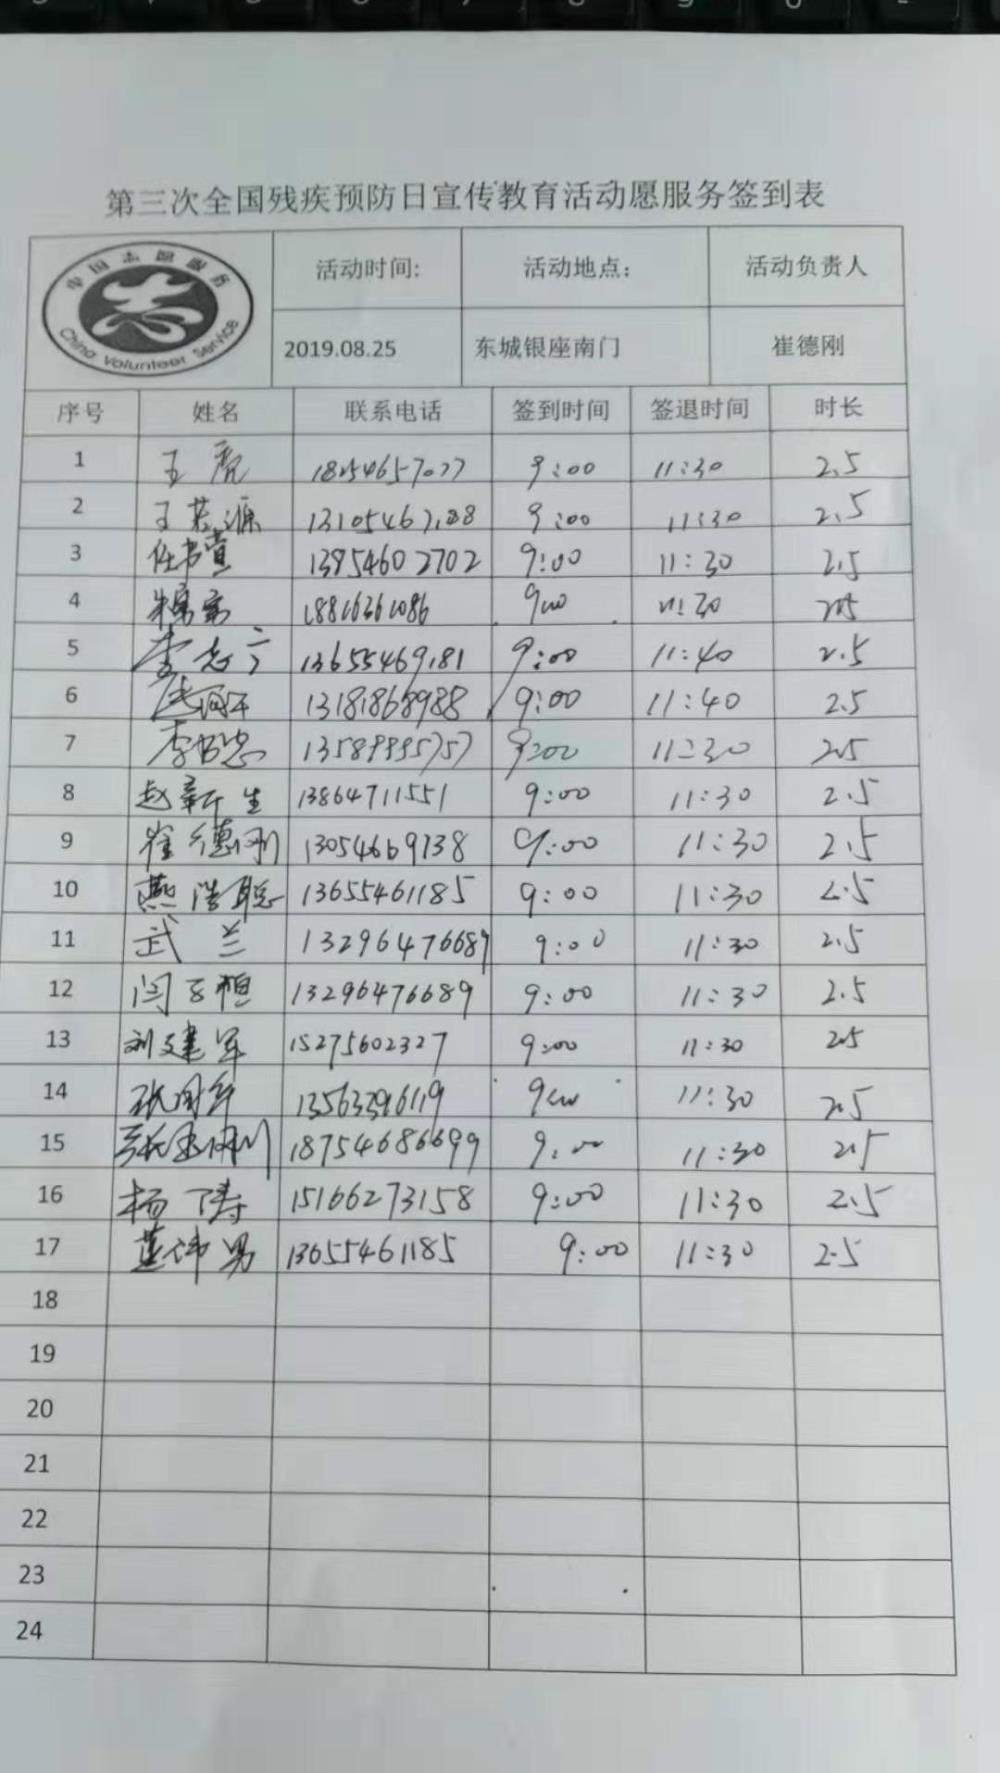 第三次全国残疾预防日宣传教育活动愿服务签到表
中国志愿服务
China Volunteer Service
活动时间: 活动地点: 活动负责人
2019.08.25 东城银座南门 崔德刚
序号 姓名 联系电话 签到时间 签退时间 时长
1 王虎 18254657077 9:00 11:30 2.5
2 9:00 11:30 2.5
3 任书萱 13854602702 9:00 11:30 2.5
4 18816361086 11:30 2.5
5 13655469181 9:00 11:40 2.5
6 13181868988 9:00 11:40 2.5
7 李书忠 13589995757 9:00 11:30 2.5
8 赵新生 13864711551 9:00 11:30 2.5
9 崔德刚 13054669738 9:00 11:30 2.5
10 燕浩聪 13655461185 9:00 11:30 2.5
11 武兰 13296476689 9:00 11:30 2.5
12 闫子恒 13296476689 9:00 11:30 2.5
13 刘建军 15275602327 9:00 11:30 2.5
14 11:30 2.5
15 18754686699 9:00 11:30 2.5
16 杨涛 15166273158 9:00 11:30 2.5
17 13655461185 9:00 11:30 2.5
18
19
20
21
22
23
24